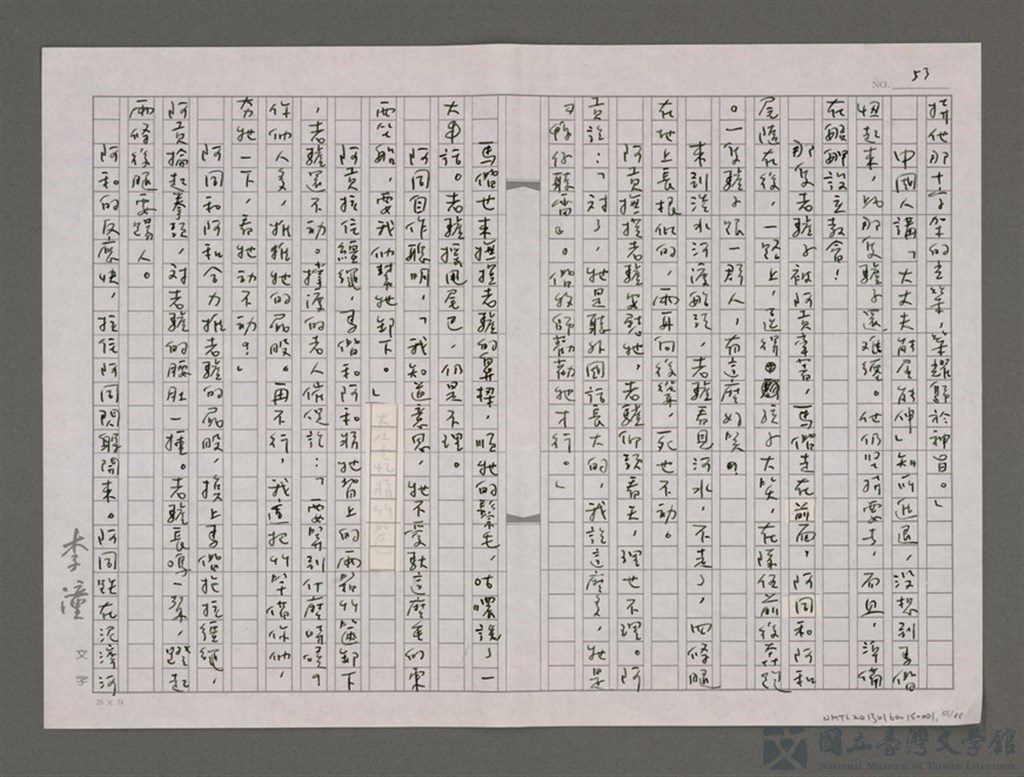 53
NO.
擠他那十字架的主榮，榮耀歸於神旨。」
中國人講「大丈夫能屈能伸」知所進退，沒想到馬偕
起來，比那隻驢子還難纏。他仍堅持要去，而且，準備
在艋舺設立教會！
那隻老驢子被阿貢牽著，馬偕走在前面，阿同和阿和
尾隨在後，一路上，逗得孩子大笑，在隊伍前後奔跑
。一隻驢子跟一群人，有這麼好笑？
來到淡水河渡船頭，老驢看見河水，不走了，四條腿
在地上長根似的，兩耳向後聳，死也不動。
阿貢撫摸老驢安慰牠，老驢仰頭看天，理也不理。阿
貢說：「對了，牠是聽外國話長大的，我說這麼多，牠是
『鴨仔聽雷』。偕牧師勸勸牠才行。」
馬偕也來撫摸老驢的鼻樑，順牠的鬃毛，咕噥說了一
大串話。老驢擺甩尾巴，仍是不理。
阿同自作聰明，「我知道意思，牠不愛馱這麼重的東
西坐船，要我們幫牠卸下。」
阿貢拉住韁繩，馬偕和阿和將牠背上的兩箱竹籠卸下
，老驢還不動。撐渡的老人催促說：「要等到什麼時候？
你們人多，推推牠的屁股。再不行，我這把竹竿借你們，
夯牠一下，看牠動不動？」
阿同和阿和合力推老驢的屁股，換上馬偕拖拉韁繩，
阿貢掄起拳頭，對老驢的腰肚一捶。老驢長鳴一聲，蹬起
兩條後腿要踢人。
阿和的反應快，拉住阿同閃躲開來。阿同跌在泥濘河
李潼
文字
25×24
NMTL20130160015-001
國立臺灣文學館
National Museum of Taiwan Literature